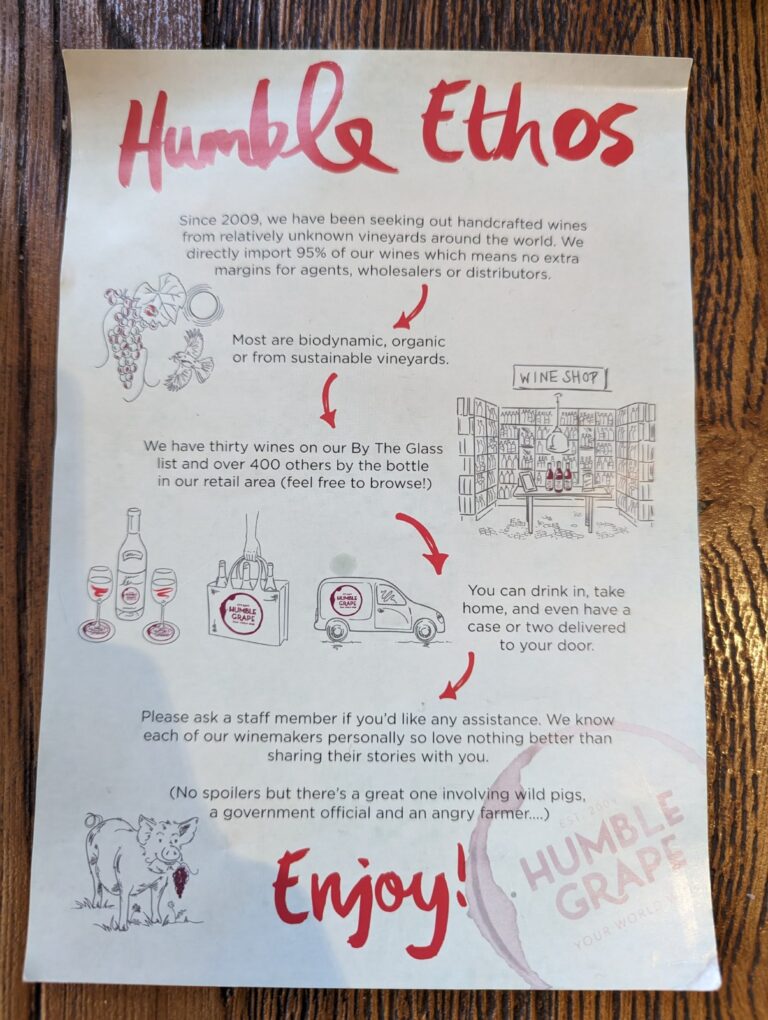 Humble Ethos
Since 2009, we have been seeking out handcrafted wines
from relatively unknown vineyards around the world. We
directly import 95% of our wines which means no extra
margins for agents, wholesalers or distributors.
Most are biodynamic, organic
or from sustainable vineyards.
WINE SHOP
We have thirty wines on our By The Glass
list and over 400 others by the bottle
in our retail area (feel free to browse!)
HUMBLE
GRAPE
HUMBLE
GRAPE
You can drink in, take
home, and even have a
case or two delivered
to your door.
Please ask a staff member if you'd like any assistance. We know
each of our winemakers personally so love nothing better than
sharing their stories with you.
(No spoilers but there's a great one involving wild pigs,
a government official and an angry farmer....)
Enjoy!
EST. 2009
HUMBLE
GRAPE
YOUR WORLD